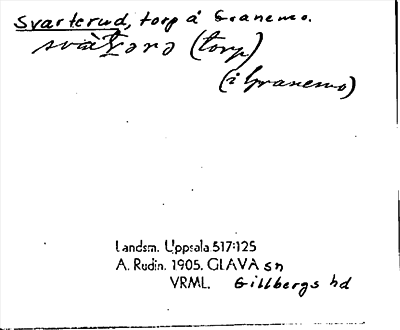 Svarterud, torp å Granemo.
(torp)
(i Granemo)
Landsm. Uppsala 517:125
A. Rudin. 1905. GLAVA sn
VRML. Gillbergs hd